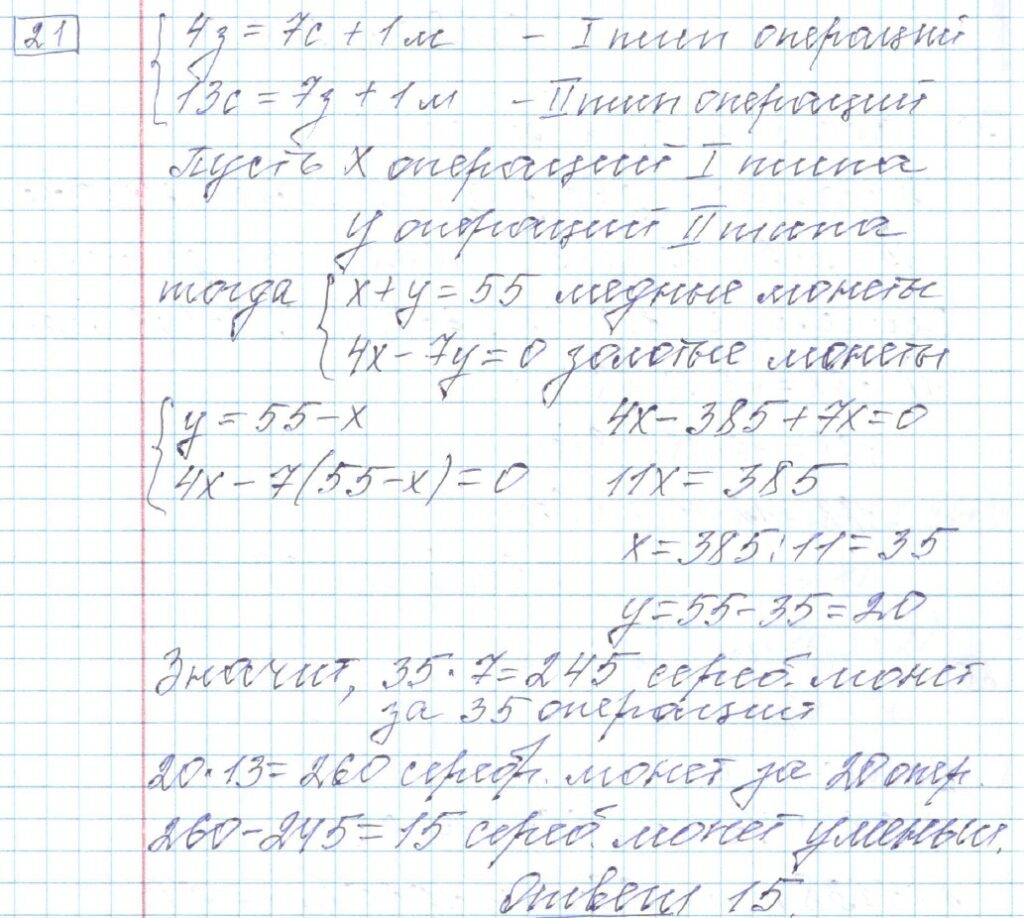 21
4з = 7с + 1м - I тип операций
13с = 7з + 1м - II тип операций
Пусть x операций I типа
y операций II типа
тогда x + y = 55 медные монеты
4x - 7y = 0 золотые монеты
y = 55 - x 4x - 385 + 7x = 0
4x - 7(55 - x) = 0 11x = 385
x = 385 : 11 = 35
y = 55 - 35 = 20
Значит, 35 · 7 = 245 сереб. монет
за 35 операций
20 · 13 = 260 серебр. монет за 20 опер.
260 - 245 = 15 сереб. монет уменьш.
Ответ 15.